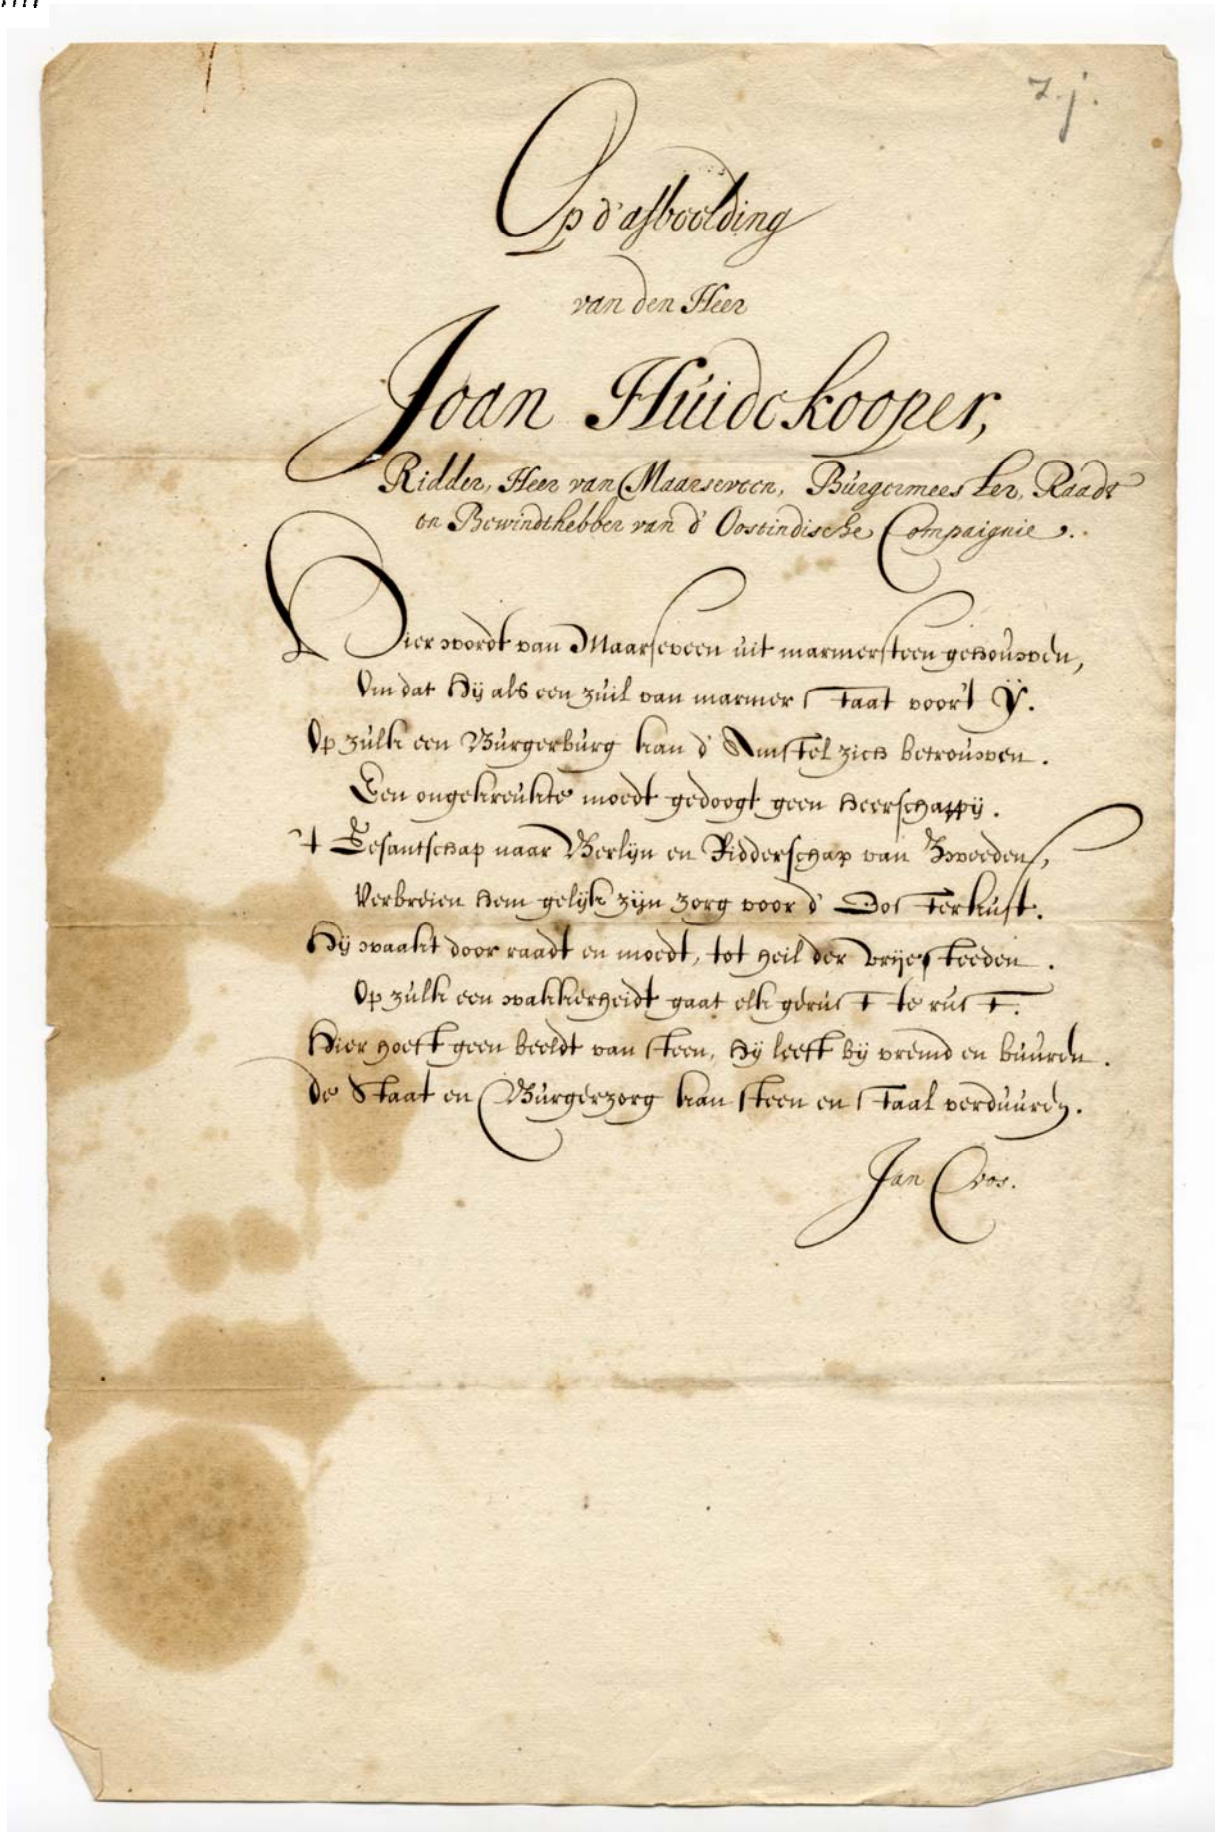 z.j.
Op d'afbeelding
van den Heer
Joan Huidekooper,
Ridder, Heer van Maarseveen, Burgermeester, Raadt
en Bewindthebber van d'Oostindische Compaignie.
Hier wordt van Maarseveen uit marmersteen gehouwen,
Om dat hij als een zuil van marmer staat voor't Ÿ.
Op zulk een Burgerburg kan d'Amstel zich betrouwen.
Een ongekreukte moedt gedoogt geen heerschappij.
't Gesantschap naar Berlijn en Ridderschap van Zweeden,
Verbreien hem gelijk zijn zorg voor d'Oosterkust.
Hij waakt door raadt en moedt, tot heil der vrije steeden.
Op zulk een wakkerheidt gaat elk gerust te rust.
Hier hoeft geen beeldt van steen, hij leeft bij vremd en buuren.
de Staat en Burgerzorg kan steen en staal verduuren.
Jan Vos.